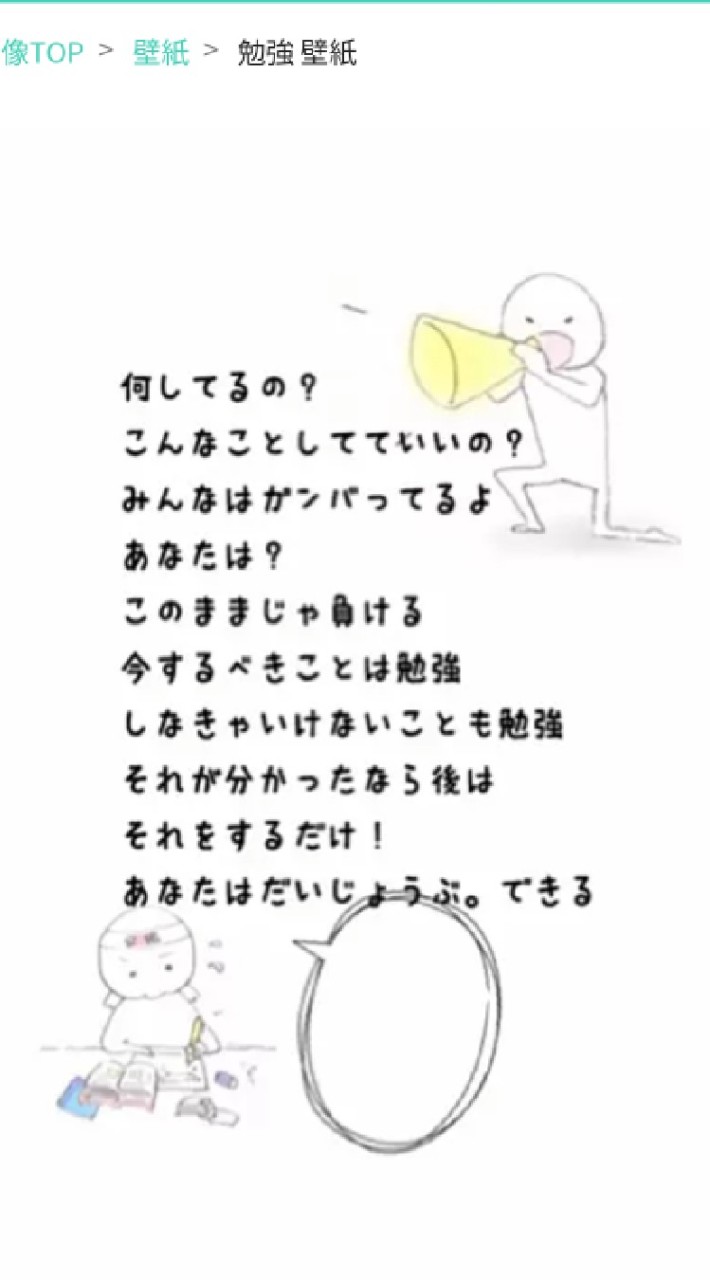 像TOP > 壁紙 > 勉強 壁紙
何してるの？
こんなことしてていいの？
みんなはガンバってるよ
あなたは？
このままじゃ負ける
今するべきことは勉強
しなきゃいけないことも勉強
それが分かったなら後は
それをするだけ！
あなたはだいじょうぶ。できる